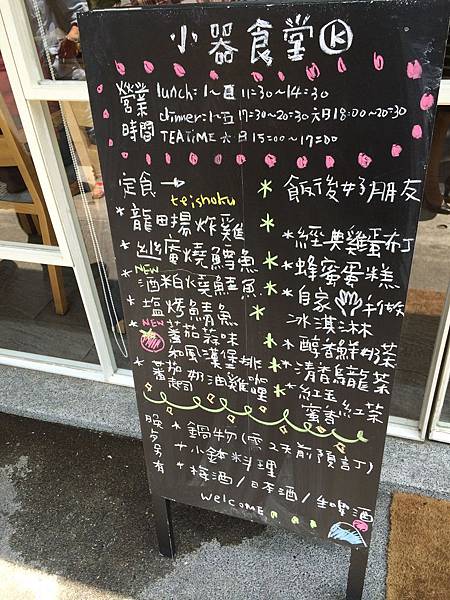 小器食堂 K
營業時間
lunch:1~日 11:30~14:30
dinner:1~五 17:30~20:30 六日18:00~20:30
TEATIME 六.日 15:00~17:00
定食→
teishoku
*龍田揚炸雞
*幽庵燒鱈魚
*NEW酒粕燒鮭魚
*塩烤鯖魚
NEW蕃茄蒜味
和風漢堡排
*蕃茄奶油雞咖哩
起司
飯後好朋友
*經典雞蛋布丁
*蜂蜜蛋糕
*自家手做
冰淇淋
*醇香鮮奶茶
*清香烏龍茶
*紅玉紅茶
蜜香
晚夕另有
*鍋物(需2天前預訂)
+小鉢料理
*梅酒/日本酒/生啤酒
welcome